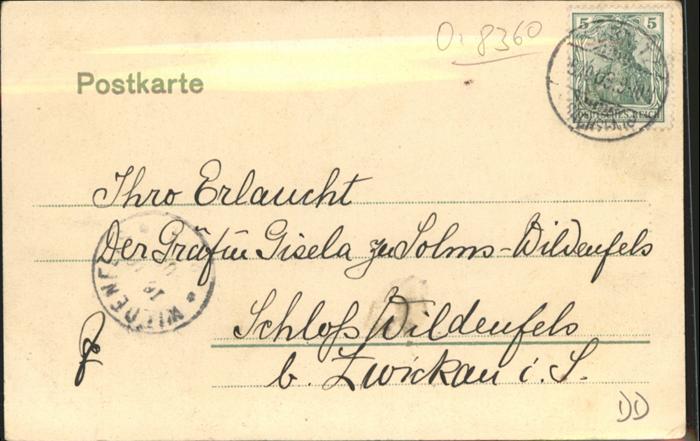 O. 8360
5 5
DEUTSCHES REICH
Postkarte
Ihro Erlaucht
Der Gräfin Gisela zu Solms-Wildenfels
Schloß Wildenfels
b. Zwickau i. S.
DD